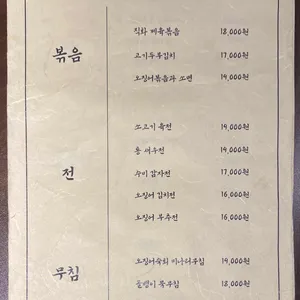 볶음
직화 제육볶음 18,000원
고기두부김치 17,000원
오징어볶음과 소면 19,000원
전
쏘고기 육전 19,000원
통 새우전 19,000원
수미 감자전 17,000원
오징어 김치전 16,000원
오징어 부추전 16,000원
무침
오징어숙회 미나리무침 19,000원
골뱅이 쪽무침 18,000원